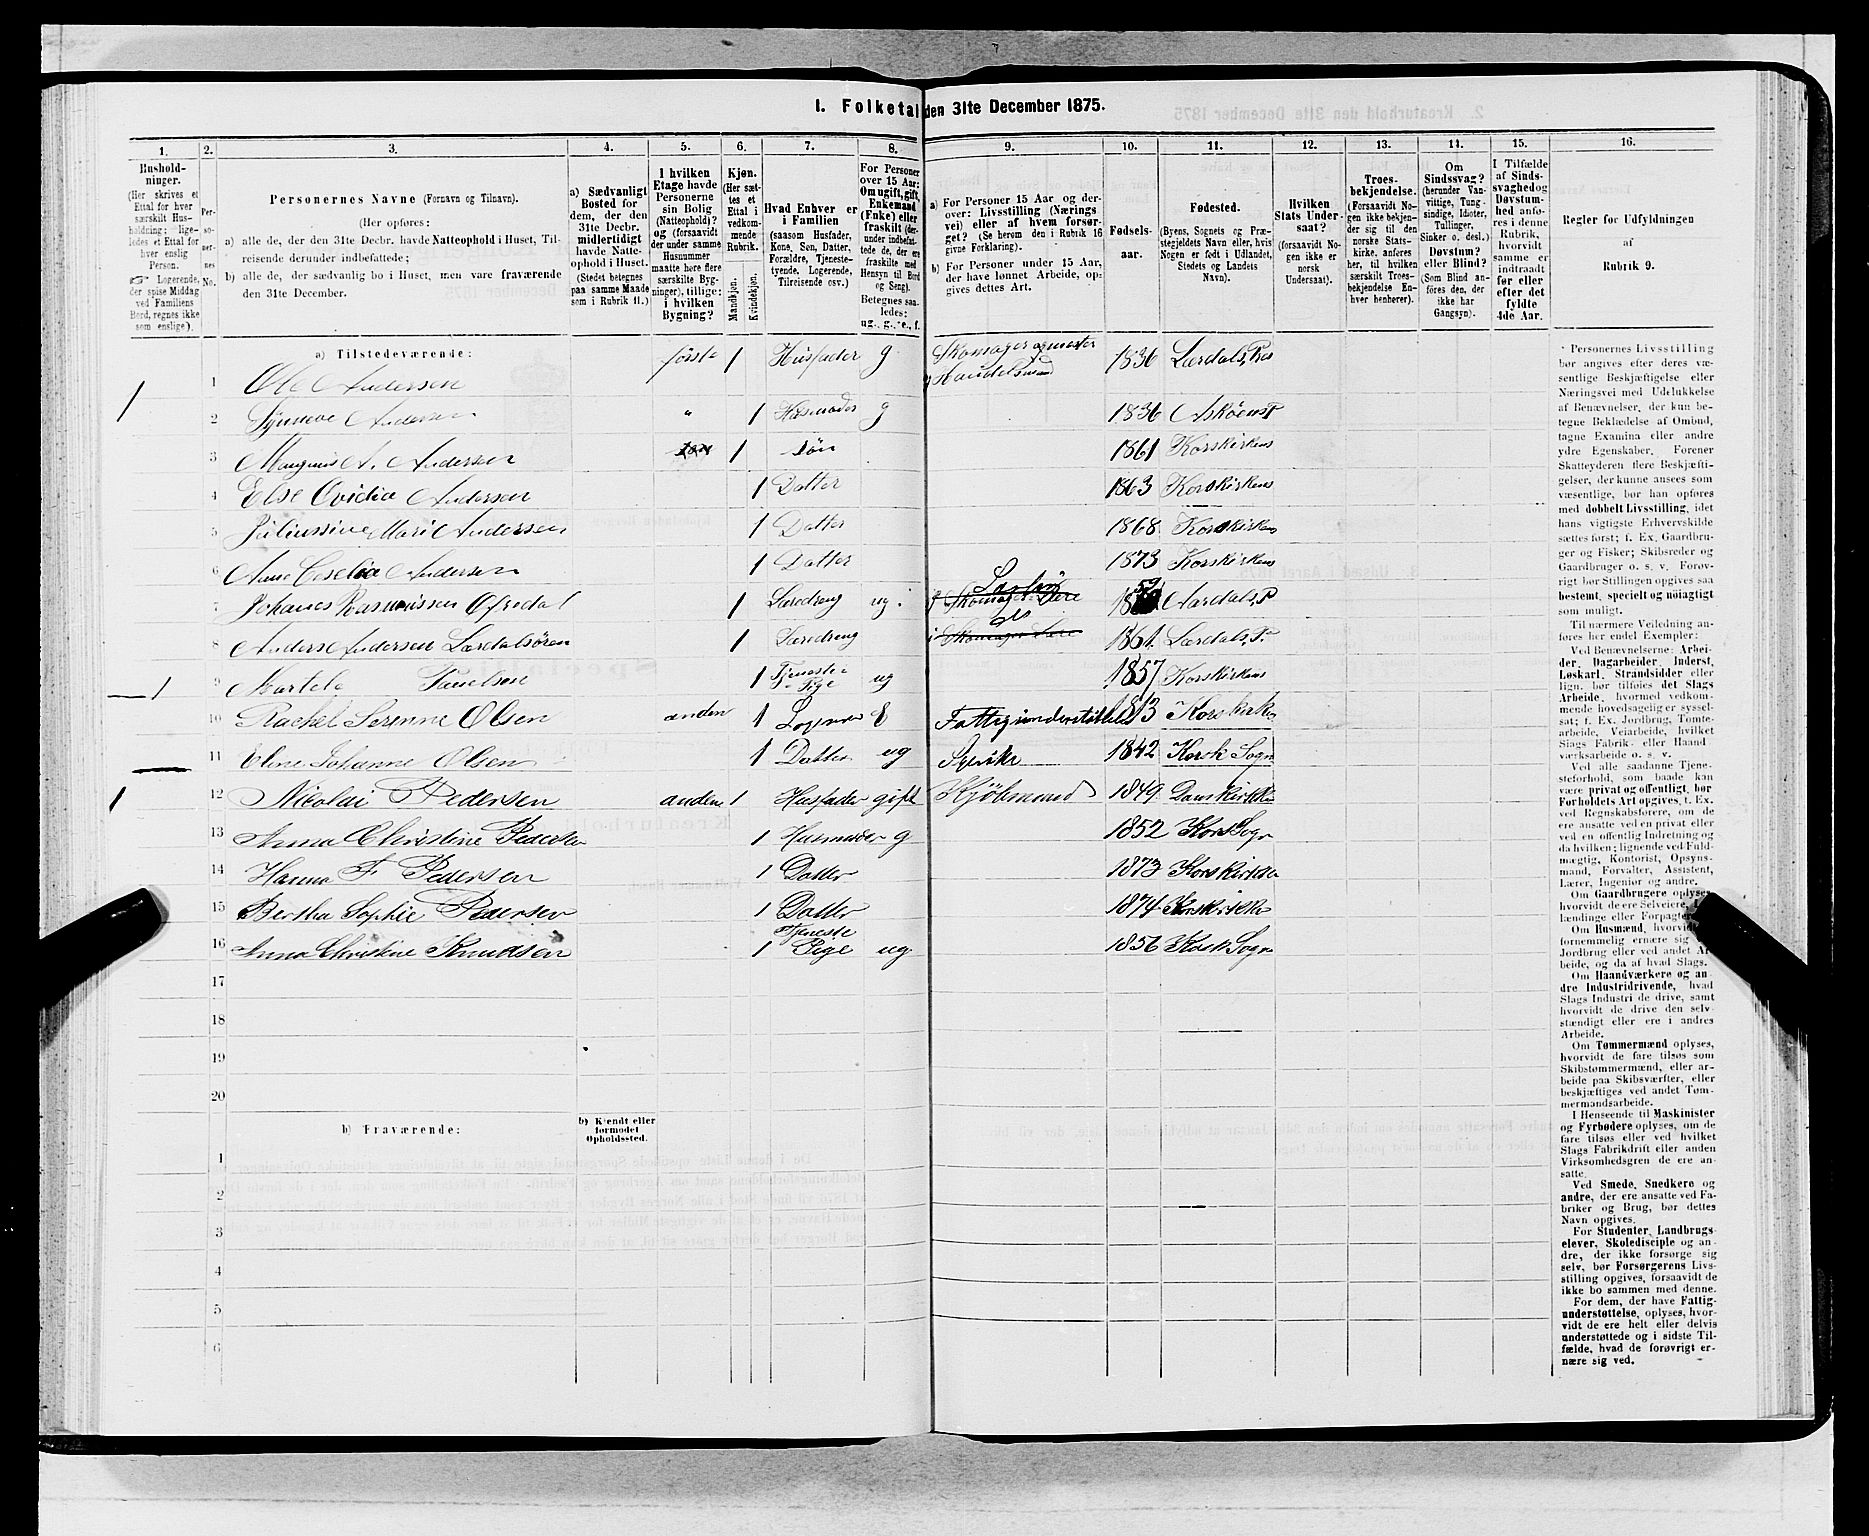 1. Folketal den 31te December 1875.
1.
Husholdninger.
(Her skrives et Ettal for hver særskilt Husholdning; ligeledes et Ettal for hver enslig Person.
Logerende, der spise Middag ved Familiens Bord, regnes ikke som enslige).
2.
Personernes No.
3.
Personernes Navne (Fornavn og Tilnavn).
(Her opføres:
a) alle de, der den 31te Decbr. havde Natteophold i Huset, Tilreisende derunder indbefattede;
b) alle de, der sædvanlig bo i Huset, men vare fraværende den 31te December.
4.
a) Sædvanligt Bosted for dem, der den 31te Decbr. midlertidigt havde Natteophold i Huset.
(Stedet betegnes paa samme Maade som i Rubrik 11.)
5.
I hvilken Etage havde Personerne sin Bolig (Natteophold)? og (forsaavidt der under samme Husnummer maatte høre flere særskilte Bygninger), tillige: i hvilken Bygning?
6.
Kjøn.
(Her sættes et Ettal i vedkommende Rubrik.
Mandkjøn.
Kvindekjøn.
7.
Hvad Enhver er i Familien
(saasom Husfader, Kone, Søn, Datter, Forældre, Tjenestetyende, Logerende, Tilreisende osv.)
8.
For Personer over 15 Aar: Om ugift, gift, Enkemand (Enke) eller fraskilt (derunder indbefattede de, der ere fraskilte med Hensyn til Bord og Seng).
Betegnes saaledes:
ug., g., e., f.
9.
a) For Personer 15 Aar og derover: Livsstilling (Næringsvei) eller af hvem forsørget? (Se herom den i Rubrik 16 givne Forklaring).
b) For Personer under 15 Aar, der have lønnet Arbeide, opgives dettes Art.
10.
Fødselsaar.
11.
Fødested.
(Byens, Sognets og Præstegjeldets Navn eller, hvis Nogen er født i Udlandet, Stedets og Landets Navn).
12.
Hvilken Stats Undersaat?
(forsaavidt Nogen ikke er norsk Undersaat).
13.
Troesbekjendelse.
(Forsaavidt Nogen ikke bekjender sig til den norske Statskirke, anføres her, til hvilken særskilt Troesbekjendelse Enhver henhører).
14.
Om Sindssvag?
(herunder Vanvittige, Tungsindige, Idioter, Tullinger, Sinker o. desl.)
Døvstum? eller Blind?
(Som Blind anføres den, der ikke har Gangsyn).
15.
I Tilfælde af Sindssvaghed og Døvstumhed anføres i denne Rubrik, hvorvidt samme er indtraadt før eller efter det fyldte 4de Aar.
16.
Regler for Udfyldningen
af
Rubrik 9.
a) Tilstedeværende:
1 1 Ole Andersen første 1 Husfader g Skomagermester og Handelsmand 1836 Lærdals, Præs
2 Synneve Andersen " 1 Husmoder g 1836 Askøens P
3 Magnus A. Andersen 1 Søn 1861 Korskirkens
4 Else Ovidia Andersen 1 Datter 1863 Korskirkens
5 Juliussine Marie Andersen 1 Datter 1868 Korskirkens
6 Ane Andersen 1 Datter 1873 Korskirkens
7 Johanes Rasmussen Ofredal 1 Læredreng ug. i Skomager Lære Aardals, P
8 Anders Andersen Lærdalsøren 1 Læredreng do i Skomager Lære 1861 Lærdals, P.
1 9 1 Tjeneste Pige ug 1857 Korskirkens
10 Rachel Serinne Olsen anden 1 Logerende E Fattigunderstøttelse 1813 Korskirkes
11 Eline Johanne Olsen 1 Datter ug Syerske 1842 Korsk Sogn
1 12 Nicolai Pedersen anden 1 Husfader gift Kjøbmand 1849 Domkirken
13 Anna Christine Pedersen 1 Husmoder g 1852 Kors Sogn
14 Hanna F Pedersen 1 Datter 1873 Korskirken
15 Bertha Sophie Pedersen 1 Datter 1874 Korskirken
16 Anna Christine Knudsen 1 Tjeneste Pige ug 1856 Korsk Sogn
17
18
19
20
b) Fraværende:
b) Kjendt eller formodet Opholdssted.
1
2
3
4
5
6
Personernes Livsstilling
bør angives efter deres væ-
sentlige Beskjæftigelse eller
Næringsvei med Udelukkelse
af Benævnelser, der kun be-
tegne Beklædelse af Ombud,
tagne Examina eller andre
ydre Egenskaber. Forener
Skatteyderen flere Beskjæfti-
gelser, der kunne ansees som
væsentlige, bør han opføres
med dobbelt Livsstilling, idet
hans vigtigste Erhvervskilde
sættes først; f. Ex. Gaardbru-
ger og Fisker; Skibsreder og
Gaardbruger o. s. v. Forøv-
rigt bør Stillingen opgives saa
bestemt, specielt og nøiagtigt
som muligt.
Til nærmere Veiledning an-
føres her endel Exempler:
Ved Benævnelserne: Arbei-
der, Dagarbeider, Inderst,
Løskarl, Strandsidder eller
lign. bør tilføies det Slags
Arbeide, hvormed vedkom-
mende hovedsagelig er syssel-
sat; f. Ex. Jordbrug, Tømte-
arbeide, Veiarbeide, hvilket
Slags Fabrik- eller Haand
værksarbeide o. s. v.
Ved alle saadanne Tjene-
steforhold, som baade kan
være privat og offentligt, bør
Forholdets Art opgives, f. Ex.
ved Regnskabsførere, om de
ere ansatte ved en privat eller
ved en offentlig Indretning og
da hvilken; lignende ved Fuld-
mægtig, Kontorist, Opsyns-
mand, Forvalter, Assistent,
Lærer, Ingeniør og andre.
Om Gaardbrugere oplyses,
hvorvidt de ere Selveiere,
lændinge eller Forpagtere
Om Husmænd, hvorvidt
fornemmelig ernære sig
Jordbrug eller ved andet Ar-
beide, og da af hvad Slags.
Om Haandværkere og an-
dre Industridrivende, hvad
Slags Industri de drive, samt
hvorvidt de drive den selv-
stændigt eller ere i andres
Arbeide.
Om Tømmermænd oplyses,
hvorvidt de fare tilsøs som
Skibstømmermænd, eller ar-
beide paa Skibsværfter, eller
beskjæftiges ved andet Tøm-
mermandsarbeide.
I Henseende til Maskinister
og Fyrbødere oplyses, om de
fare tilsøs eller ved hvilket
Slags Fabrikdrift eller anden
Virksomhedsgren de ere an-
satte.
Ved Smede, Snedkere og
andre, der ere ansatte ved Fa-
briker og Brug, bør dettes
Navn opgives.
For Studenter, Landbrugs-
elever, Skoledisciple og an-
dre, der ikke forsørge sig
selv, bør Forsørgerens Livs-
stilling opgives, forsaavidt de
ikke bo sammen med denne.
For dem, der have Fattig-
understøttelse, oplyses, hvor-
vidt de ere helt eller delvis
understøttede og i sidste Til-
fælde, hvad de forøvrigt er-
nære sig ved.